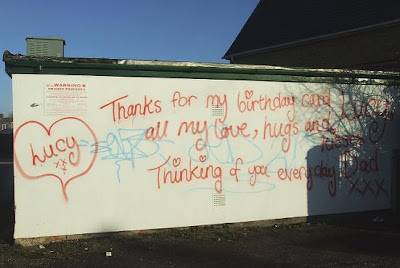 WARNING
Thanks for my birthday card Lucy
all my love, hugs and
kisses
Thinking of you everyday Dad
xxx
Lucy
xx